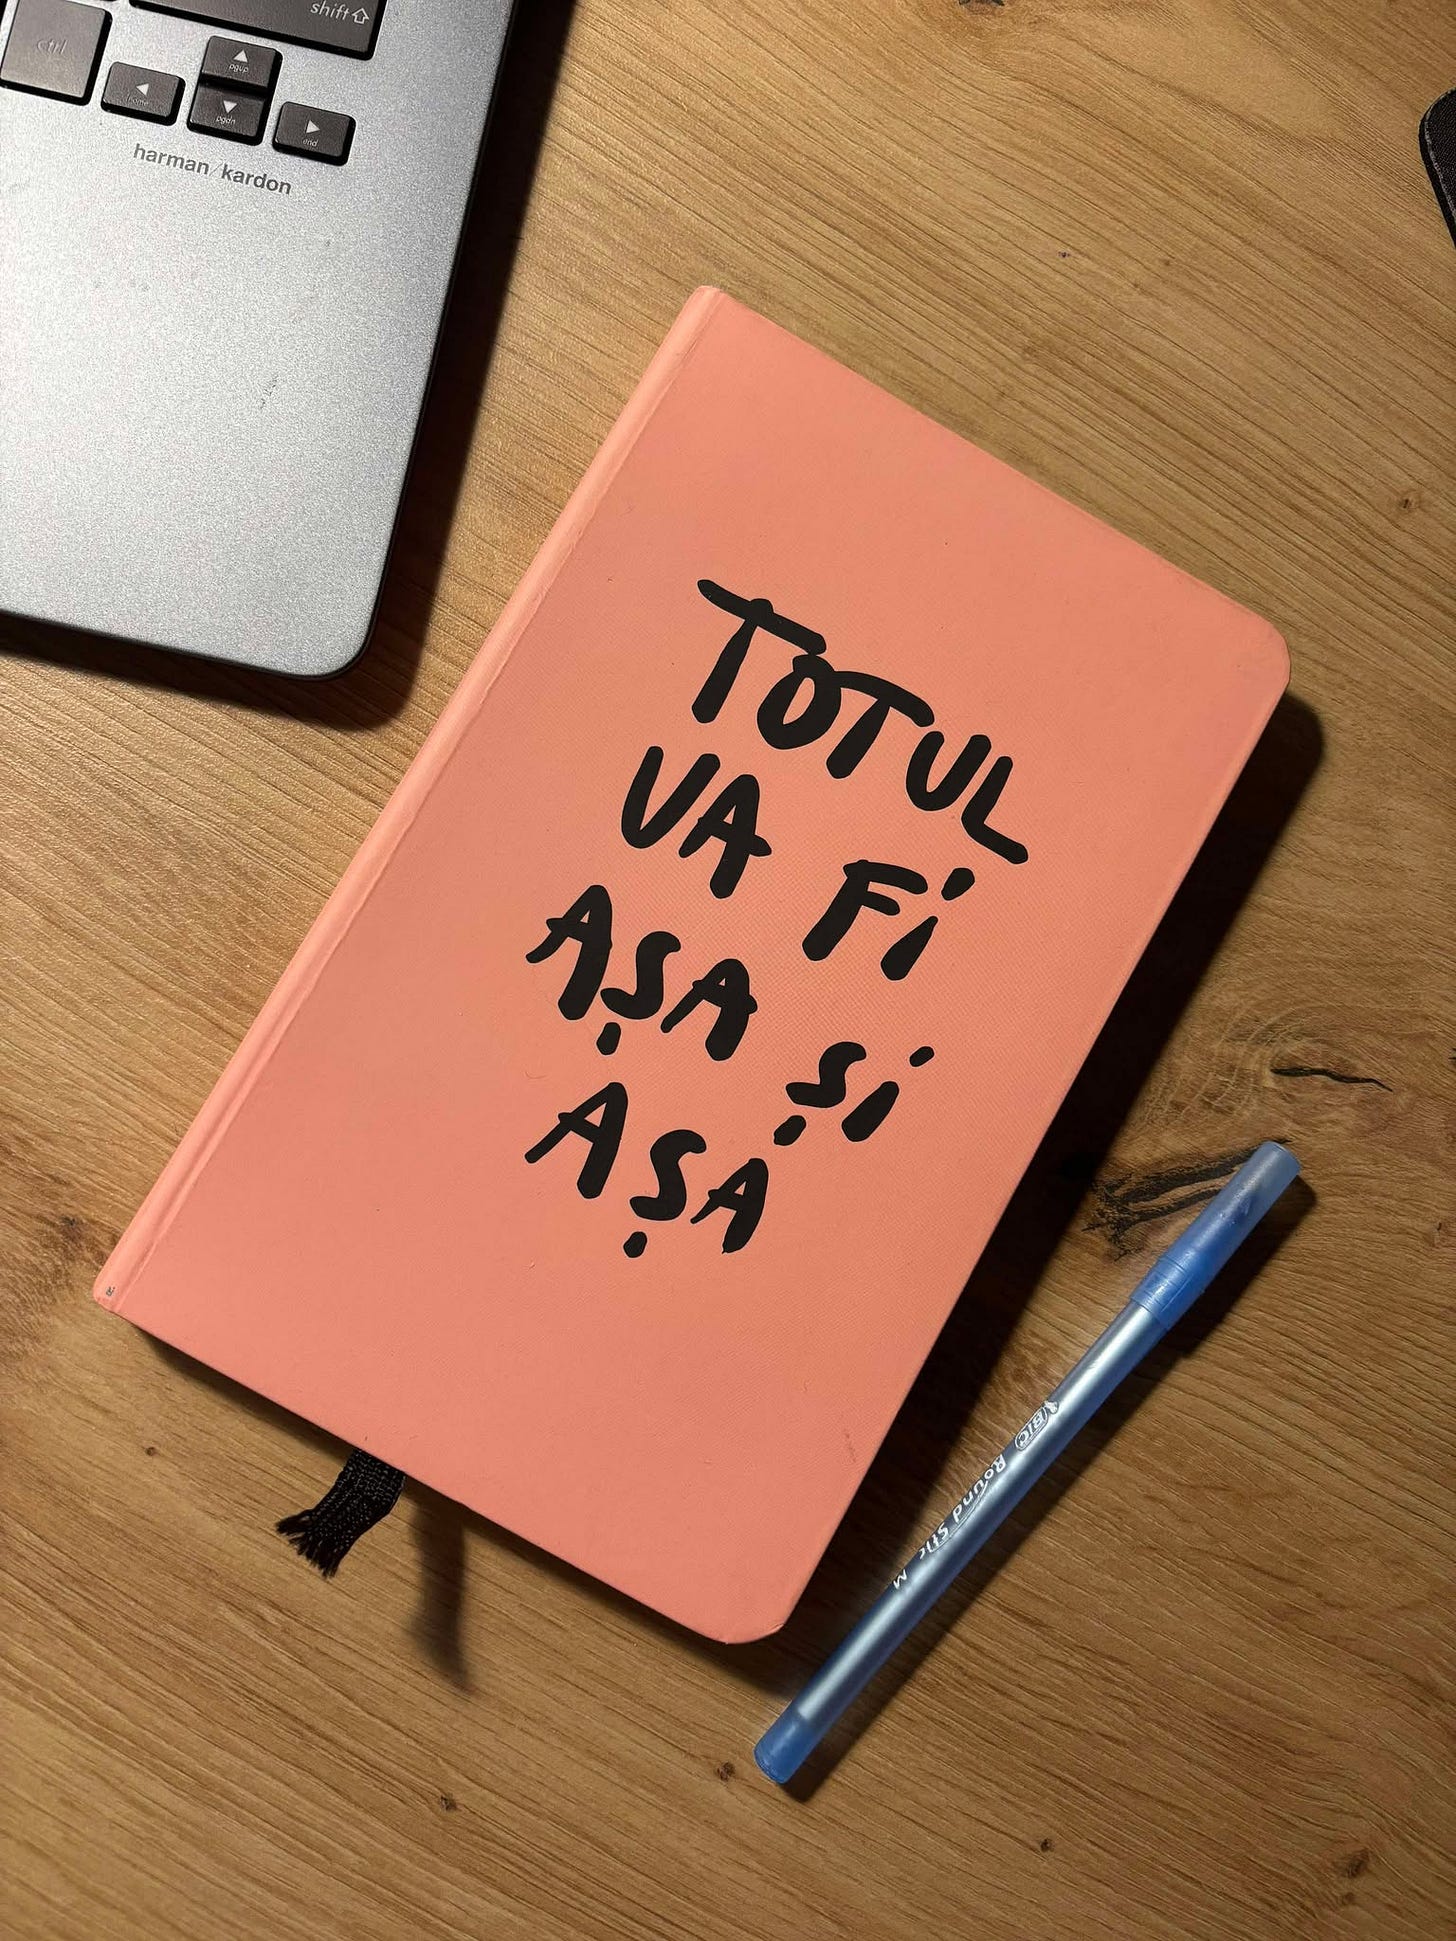 shift
ctrl
pgup
home
pgdn
end
harman / kardon
TOTUL
VA FI
AȘA ȘI
AȘA
BIC Round Stic M